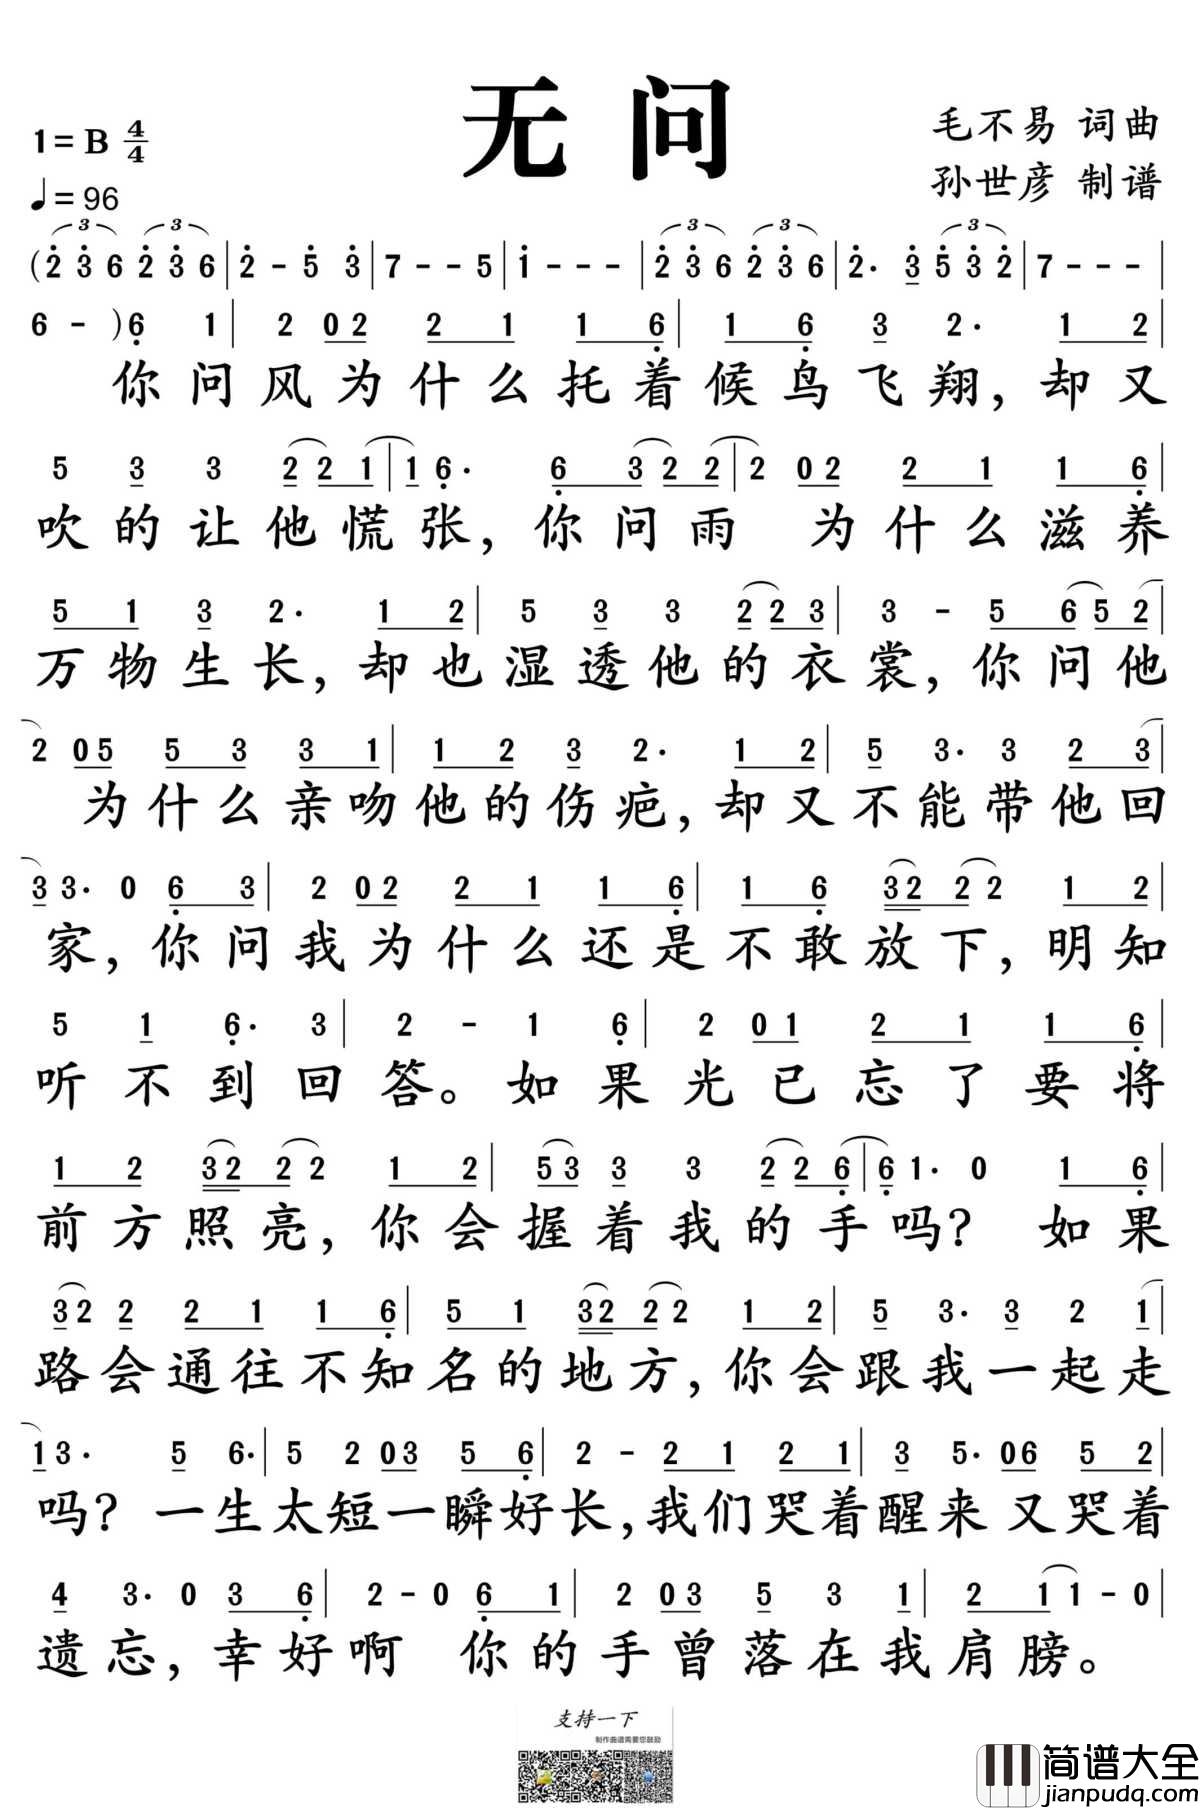 无问
1=B 4/4
毛不易 词曲
♩=96
孙世彦 制谱
(2 3 6 2 3 6|2 - 5 3|7 - - 5|1 - - -|2 3 6 2 3 6|2· 3 5 3 2|7 - - -|
6 - )6 1|2 02 2 1 1 6|1 6 3 2· 1 2|
你问风为什么托着候鸟飞翔，却又
5 3 3 2 2 1|1 6· 6 3 2 2|2 02 2 1 1 6|
吹的让他慌张，你问雨 为什么滋养
5 1 3 2· 1 2|5 3 3 2 2 3|3 - 5 6 5 2|
万物生长，却也湿透他的衣裳，你问他
2 05 5 3 3 1|1 2 3 2· 1 2|5 3· 3 2 3|
为什么亲吻他的伤疤，却又不能带他回
3 3· 0 6 3|2 02 2 1 1 6|1 6 32 2 2 1 2|
家，你问我为什么还是不敢放下，明知
5 1 6· 3|2 - 1 6|2 01 2 1 1 6|
听不到回答。如果光已忘了要将
1 2 32 2 2 1 2|53 3 3 2 2 6|6 1· 0 1 6|
前方照亮，你会握着我的手吗？ 如果
32 2 2 1 1 6|5 1 32 2 2 1 2|5 3· 3 2 1|
路会通往不知名的地方，你会跟我一起走
1 3· 5 6·|5 2 03 5 6|2 - 2 1 2 1|3 5· 06 5 2|
吗？一生太短一瞬好长，我们哭着醒来又哭着
4 3· 0 3 6|2 - 0 6 1|2 03 5 3 1|2 1 1 - 0|
遗忘，幸好啊 你的手曾落在我肩膀。
支持一下
制作曲谱需要您鼓励
简谱大全
jianpudq.com